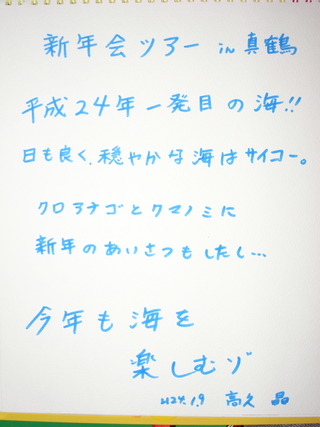 新年会ツアー in 真鶴
平成24年一発目の海!!
日も良く、穏やかな海はサイコー。
クロアナゴとクマノミに
新年のあいさつもしたし…
今年も海を
楽しむゾ
H24.1.9 高久 晶